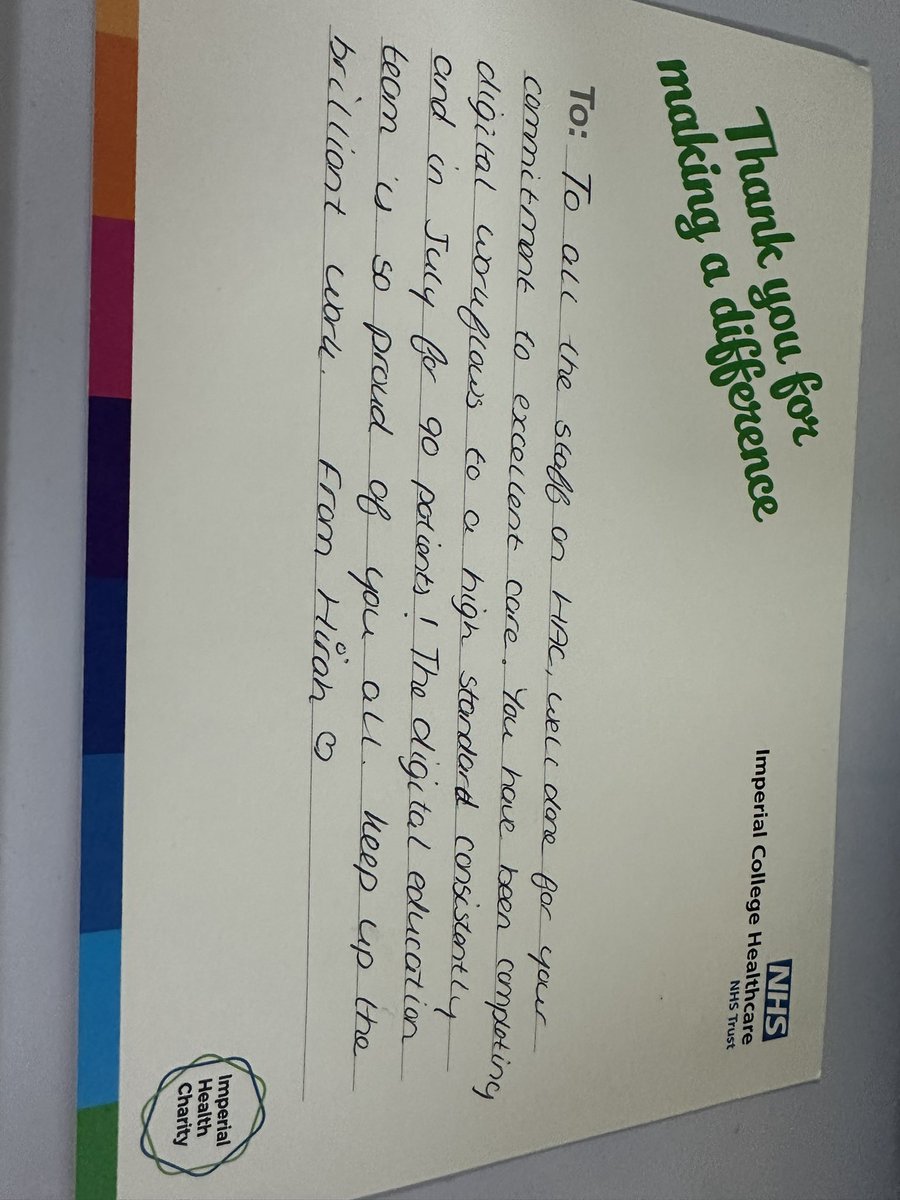 Thank you for
making a difference
NHS
Imperial College Healthcare
NHS Trust
To: To all the staff on HAC, well done for your
commitment to excellent care. You have been completing
digital worflows to a high standard consistently
and in July for 90 patients! The digital education
team is so proud of you all. Keep up the
brilliant work. From Hirah
Imperial
Health
Charity